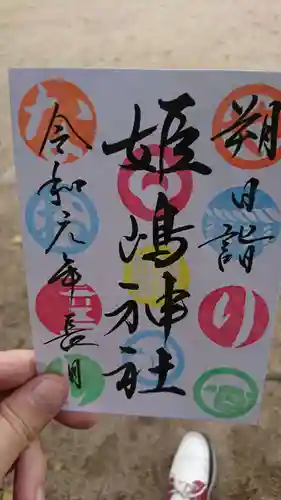 朔日詣
り
姫嶋神社
な
令和元年長月